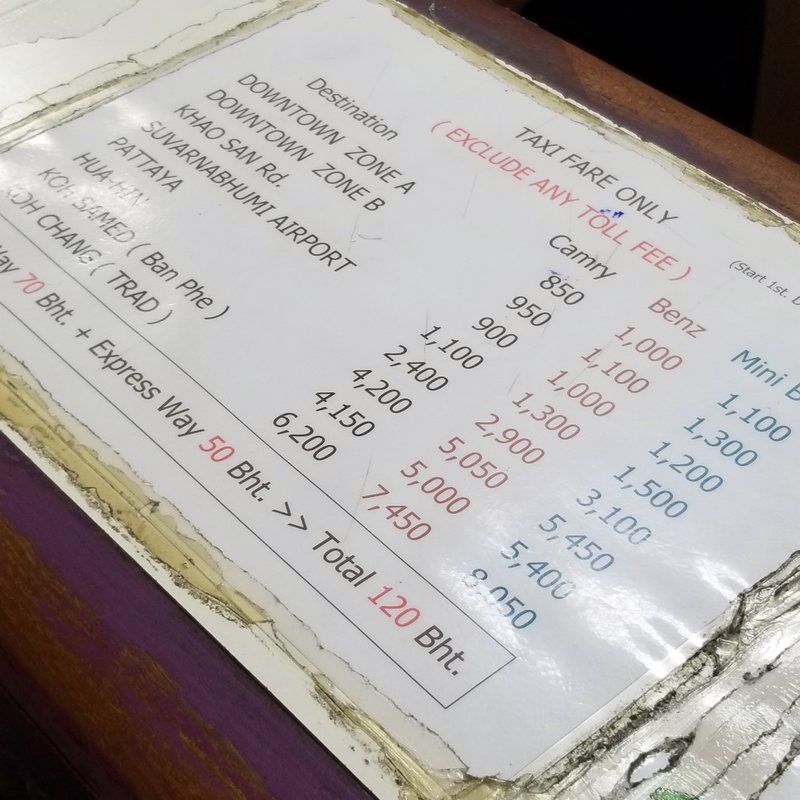 TAXI FARE ONLY
( EXCLUDE ANY TOLL FEE )
(Start 1st.
Destination Camry Benz Mini
DOWNTOWN ZONE A 850 1,000 1,100
DOWNTOWN ZONE B 950 1,100 1,300
KHAO SAN Rd. 900 1,000 1,200
SUVARNABHUMI AIRPORT 1,100 1,300 1,500
PATTAYA 2,400 2,900 3,100
HUA-HIN 4,200 5,050 5,450
KOH SAMED ( Ban Phe ) 4,150 5,000 5,400
KOH CHANG ( TRAD ) 6,200 7,450 8,050
Way 70 Bht. + Express Way 50 Bht. >> Total 120 Bht.